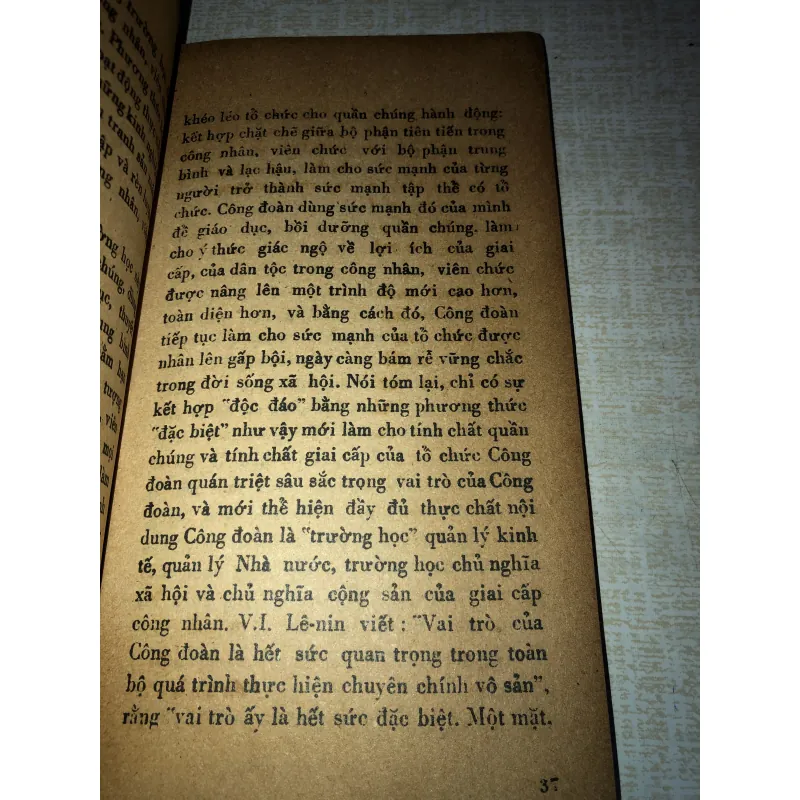 trường, 
nhân, viên
Phương
hoạt động
những kinh
tranh
tập và rèn
công nhân,
trường học
chúng,
tượng
viên
một
khéo léo tổ chức cho quần chúng hành động:
kết hợp chặt chẽ giữa bộ phận tiên tiến trong
công nhân, viên chức với bộ phận trung
bình và lạc hậu, làm cho sức mạnh của từng
người trở thành sức mạnh tập thể có tổ
chức. Công đoàn dùng sức mạnh đó của mình
để giáo dục, bồi dưỡng quần chúng. làm
cho ý thức giác ngộ về lợi ích của giai
cấp, của dân tộc trong công nhân, viên chức
được nâng lên một trình độ mới cao hơn,
toàn diện hơn, và bằng cách đó, Công đoàn
tiếp tục làm cho sức mạnh của tổ chức được
nhân lên gấp bội, ngày càng bám rễ vững chắc
trong đời sống xã hội. Nói tóm lại, chỉ có sự
kết hợp "độc đáo" bằng những phương thức
"đặc biệt" như vậy mới làm cho tính chất quần
chúng và tính chất giai cấp của tổ chức Công
đoàn quán triệt sâu sắc trọng vai trò của Công
đoàn, và mới thể hiện đầy đủ thực chất nội
dung Công đoàn là "trường học" quản lý kinh
tế, quản lý Nhà nước, trường học chủ nghĩa
xã hội và chủ nghĩa cộng sản của giai cấp
công nhân. V.I. Lê-nin viết : "Vai trò của
Công đoàn là hết sức quan trọng trong toàn
bộ quá trình thực hiện chuyên chính vô sản",
rằng "vai trò ấy là hết sức đặc biệt. Một mặt.
37